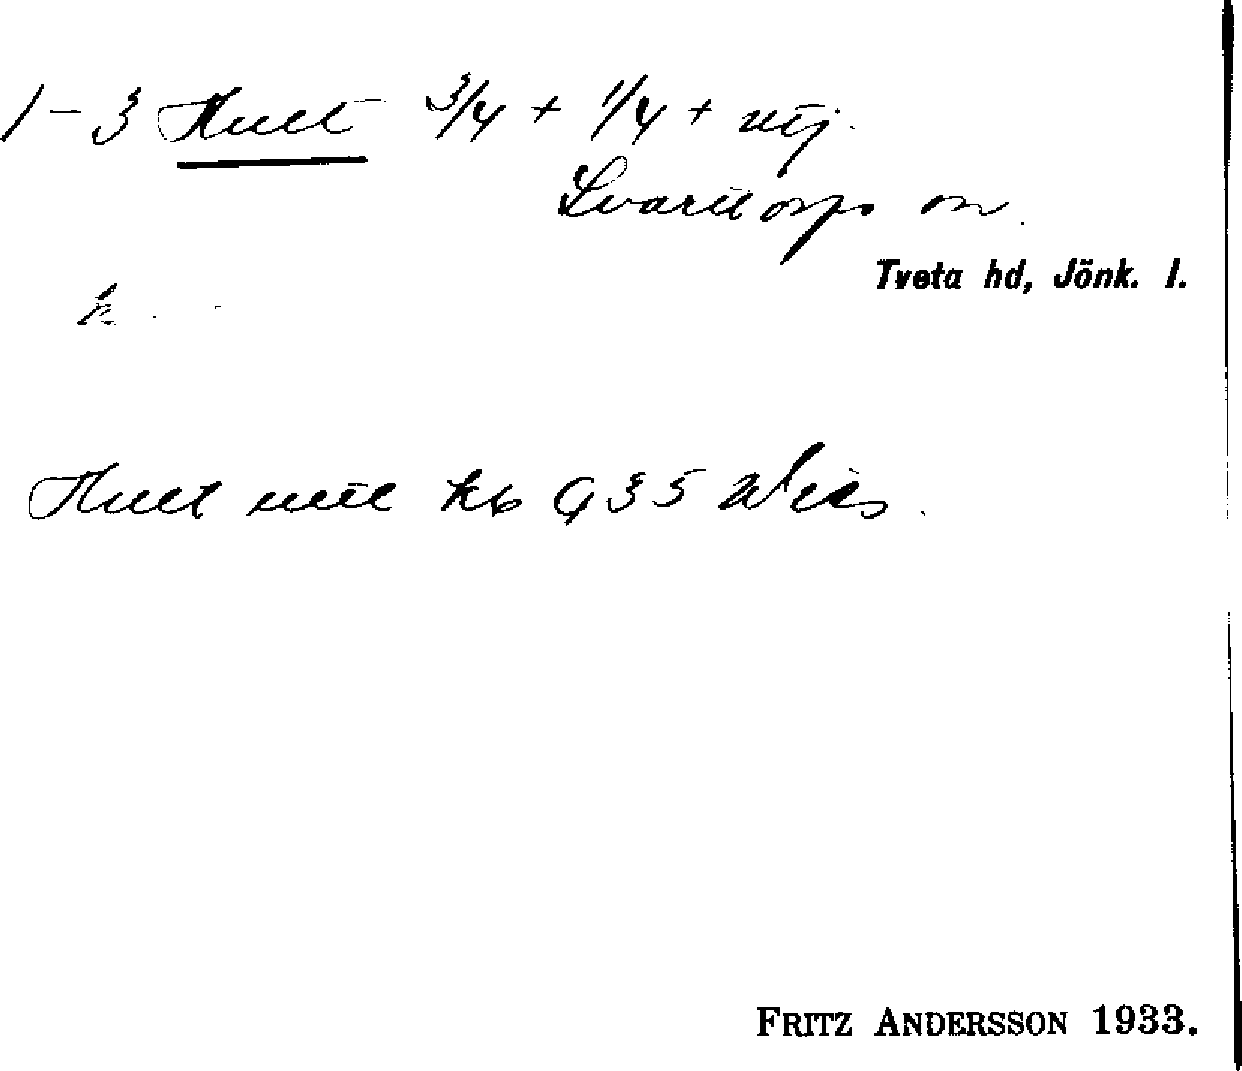 1-3 Hult 3/4 + 1/4 + utj.
Svarttorps sn.
Tveta hd, Jönk. l.
k.
Hult utt kb
FRITZ ANDERSSON 1933.